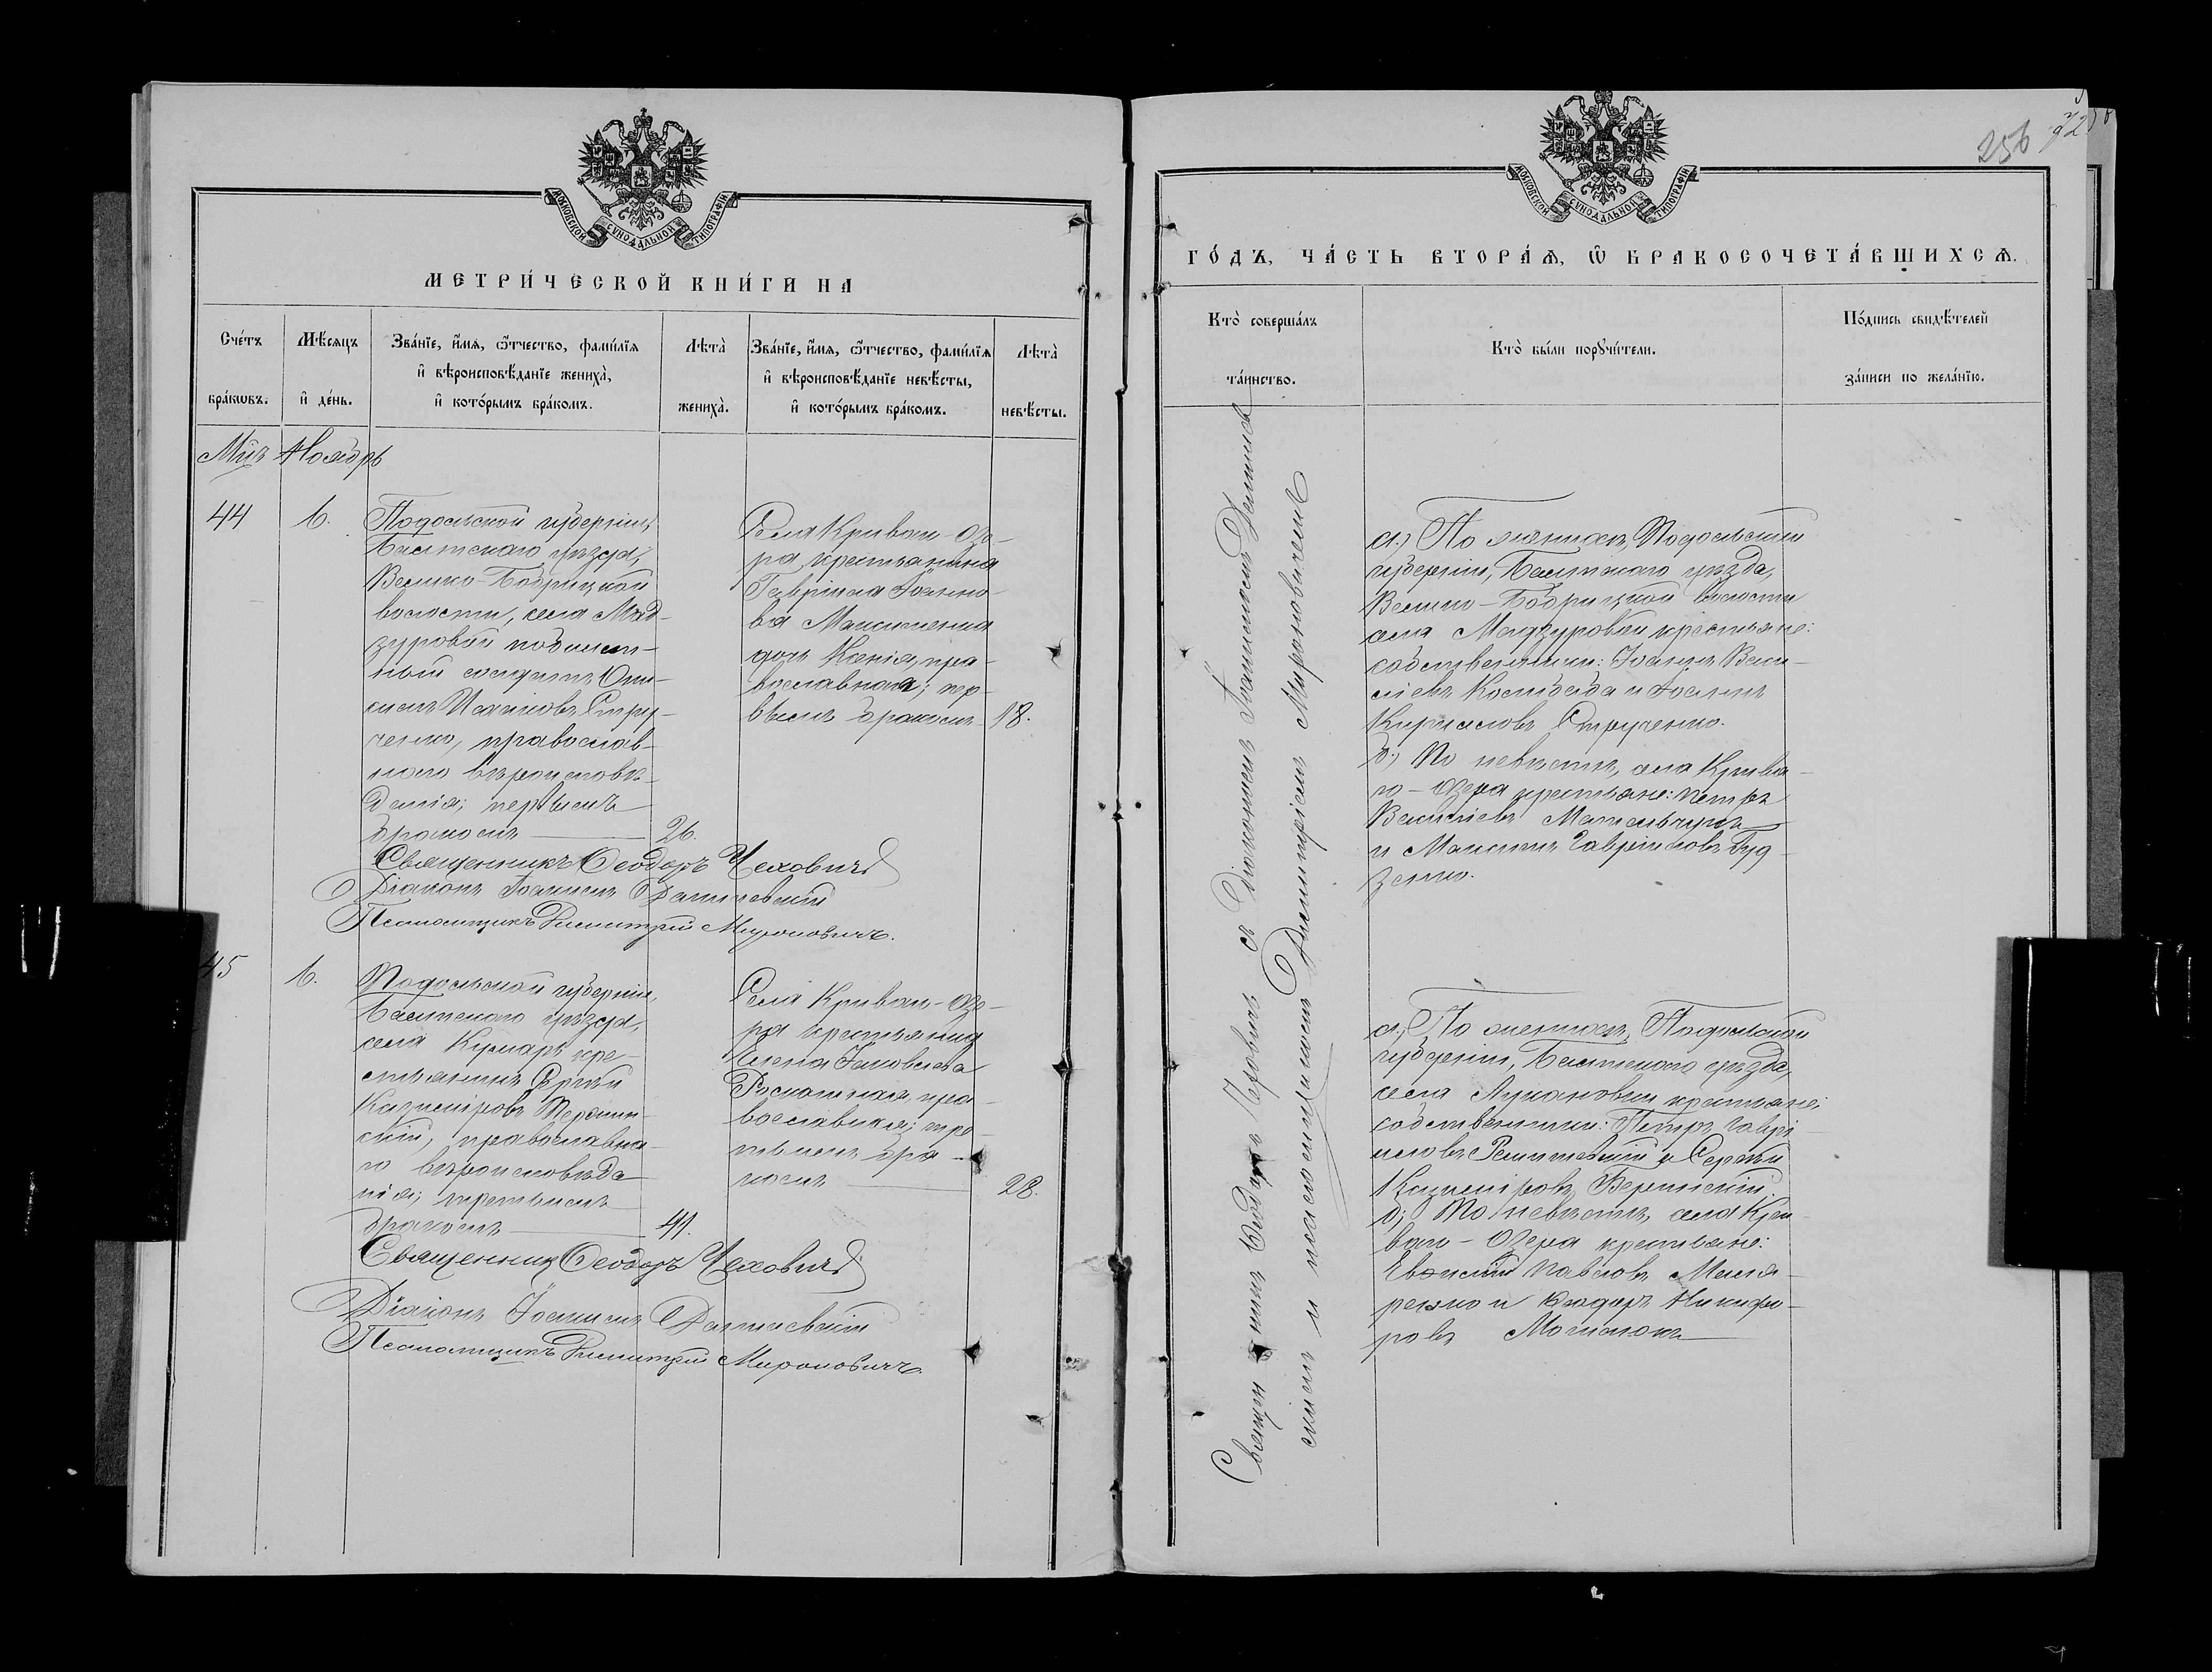 МОСКОВСКОЙ СѴНОДАЛЬНОЙ ТИПОГРАФІИ
МЕТРИ́ЧЕСКОЙ КНИ́ГИ НА
Сче́тъ бра́кѡвъ.
Мѣ́сяцъ и҆ де́нь.
Зва́нїе, и҆́мѧ, ѻ҆́тчество, фамѝлїѧ
и҆ вѣроисповѣ́данїе жениха̀,
и҆ кото́рымъ бра́комъ.
Лѣ́та̀ жениха̀.
Зва́нїе, и҆́мѧ, ѻ҆́тчество, фамѝлїѧ
и҆ вѣроисповѣ́данїе невѣ́сты,
и҆ кото́рымъ бра́комъ.
Лѣ́та̀ невѣ́сты.
Мцъ Ноябрь
44
6.
Подольской губерніи,
Балтскаго уѣзда,
Велико-Бобрицкой
волости, села Мад-
зуровой
Струченко, православ-
наго вѣроисповѣ-
данія; первымъ
бракомъ
26.
Села Криваго-Озе-
ра крестьянина
Гавріила Іоанно-
ва Максименка
дочь Ксенія, пра-
вославная; пер-
вымъ бракомъ
18.
Священникъ Ѳеодоръ Чеховичъ
Діаконъ Іоанникій Данилевскій
Псаломщикъ Димитрій Мироновичъ.
45
6.
Подольской губерніи,
Балтскаго уѣзда,
села Кумаръ кре-
стьянинъ Сергѣй
Казиміровъ
православна-
го вѣроисповѣда-
нія; третьимъ
бракомъ
41.
Села Криваго-Озе-
ра крестьянка
Елена Іаковлева
пра-
вославная; тре-
тьимъ бра-
комъ
28.
Священникъ Ѳеодоръ Чеховичъ
Діаконъ Іоанникій Данилевскій
Псаломщикъ Димитрій Мироновичъ.
256
МОСКОВСКОЙ СѴНОДАЛЬНОЙ ТИПОГРАФІИ
ГО́ДЪ, ЧА́СТЬ ВТОРА́Ѧ, Ѽ БРАКОСОЧЕТА́ВШИХСѦ.
Кто̀ соверша́лъ
та́инство.
Кто̀ бы́ли порꙋчи́тели.
По́дпись свидѣ́телей
за́писи по жела́нїю.
Священникъ Ѳеодоръ Чеховичъ съ Діакономъ
и псаломщикомъ Димитріемъ Мироновичемъ
а.) По женихѣ, Подольской
губерніи, Балтскаго уѣзда,
Велико-Бобрицкой волости
села Мадзуровой крестьяне:
собственники: Іоаннъ Васи-
ліевъ и Іоаннъ
Кирилловъ Струченко.
б.) По невѣстѣ, села Крива-
го-Озера крестьяне: Петръ
Василіевъ
и Максимъ Гавріиловъ Гуд-
зенко.
а.) По женихѣ, Подольской
губерніи, Балтскаго уѣзда,
села Лукановки крестьяне:
собственники: Петръ Гаврі-
иловъ и Сергѣй
Казиміровъ
б.) По невѣстѣ, села Кри-
ваго-Озера крестьяне:
Павловъ
и Ѳеодоръ Никифо-
ровъ